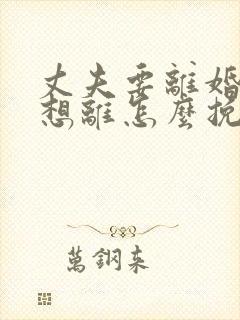 丈夫要離婚
想離怎麼挽
萬鋼來